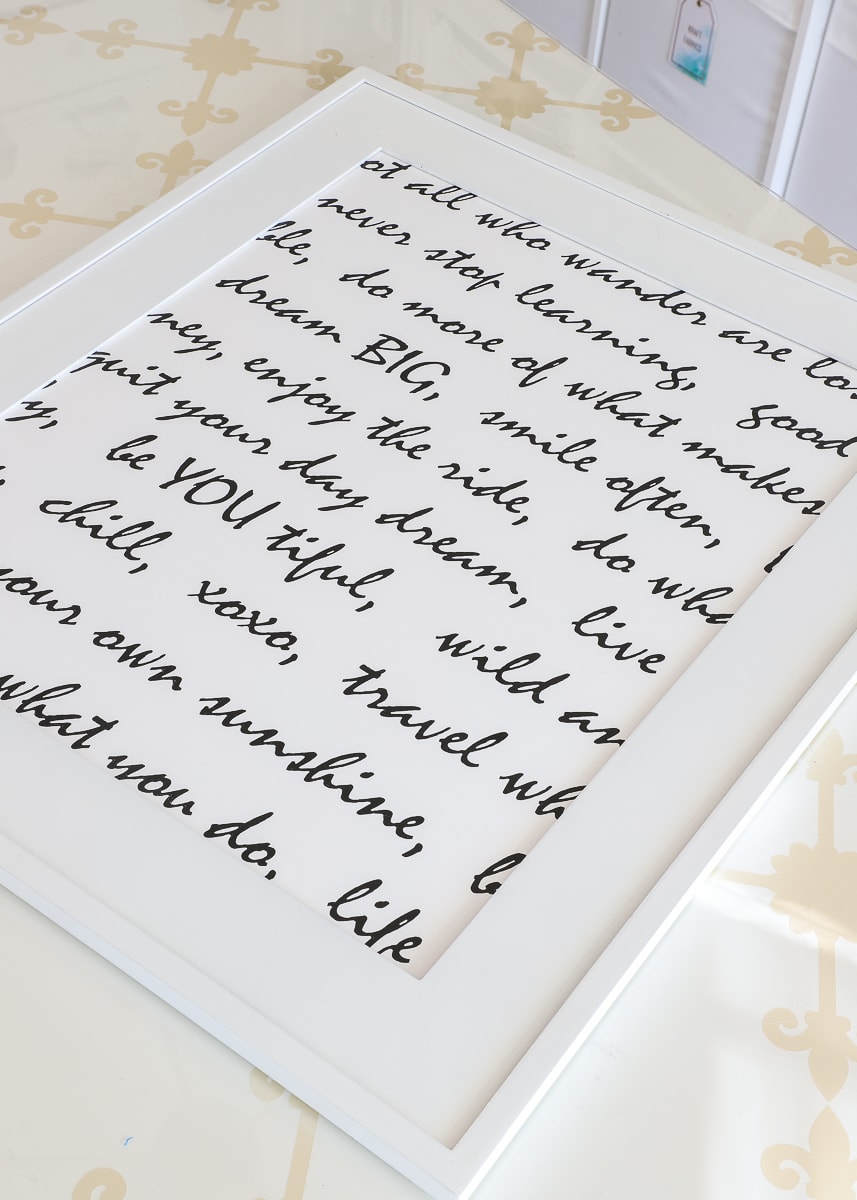 ot all who wander are lo
never stop learning, good
ble, do more of what makes
dream BIG, smile often,
ney, enjoy the ride, do wha
quit your day dream, live
y, be YOU tiful, wild an
chill, xoxo, travel wh
your own sunshine, b
what you do, life
FABRICS